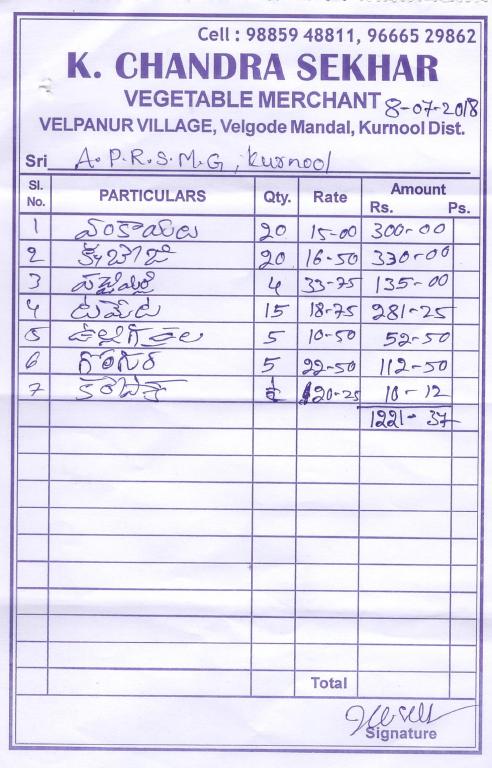 Cell : 98859 48811, 96665 29862
K. CHANDRA SEKHAR
VEGETABLE MERCHANT 8-07-2018
VELPANUR VILLAGE, Velgode Mandal, Kurnool Dist.
Sri A.P.R.S.M.G, Kurnool
Sl. No. PARTICULARS Qty. Rate Amount Rs. Ps.
1 వంకాయలు 20 15-00 300-00
2 క్యాబేజి 20 16-50 330-00
3 పచ్చిమిర్చి 4 33-75 135-00
4 టమేట 15 18-75 281-25
5 ఉల్లిగడ్డలు 5 10-50 52-50
6 గోంగూర 5 22-50 112-50
7 20-25 10-12
1221-37
Total
Signature